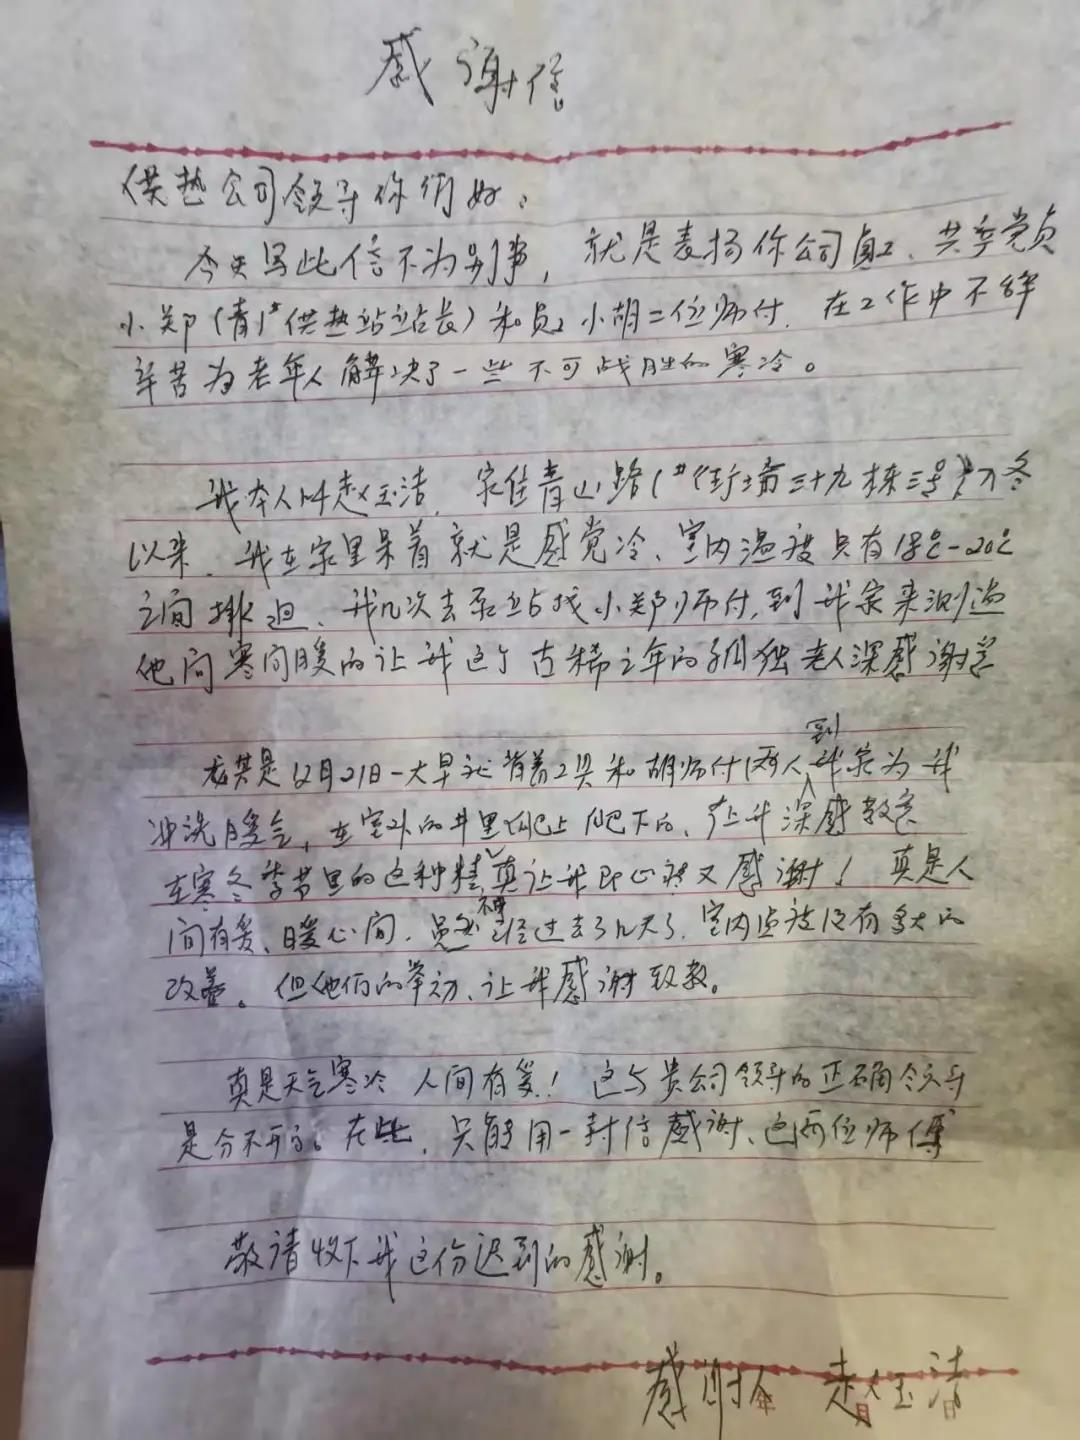 感谢信
供热公司领导你们好：
今天写此信不为别事，就是表扬你公司员工、共产党员
小郑（青1#供热站站长）和员工小胡二位师付．在工作中不辞
辛苦为老年人解决了一些不可战胜的寒冷。
我本人叫赵玉洁．家住青山路1#街坊三十九栋三号，入冬
以来．我在家里呆着就是感觉冷、室内温度只有18℃-20℃
之间排迴、我几次去泵站找小郑师付，到我家来测温
他问寒问暖的让我这个古稀之年的孤独老人深感谢意
尤其是12月21日一大早就背着工具和胡师付俩人到我家为我
冲洗暖气，在室外的井里爬上爬下的、让我深感敬意
在寒冬季节里的这种精神真让我即心疼又感谢！真是人
间有爱、暖心间．虽然经过去了几天了．室内温度没有多大的
改善。但他们的举动、让我感谢致敬。
真是天气寒冷 人间有爱！这与贵公司领导的正确领导
是分不开的。在此，只能用一封信感谢、这两位师傅
敬请收下我这份迟到的感谢。
感谢人 赵玉洁
年 月 日